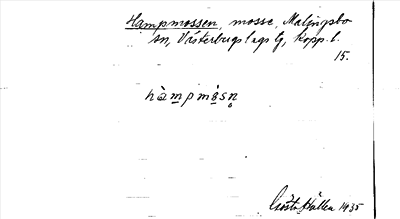 Hampmossen, mosse, Malingsbo
sn, Västerbergslags tg, Kopp. l.
15.
hàmpmòsn̥
Gösta Hallen 1935